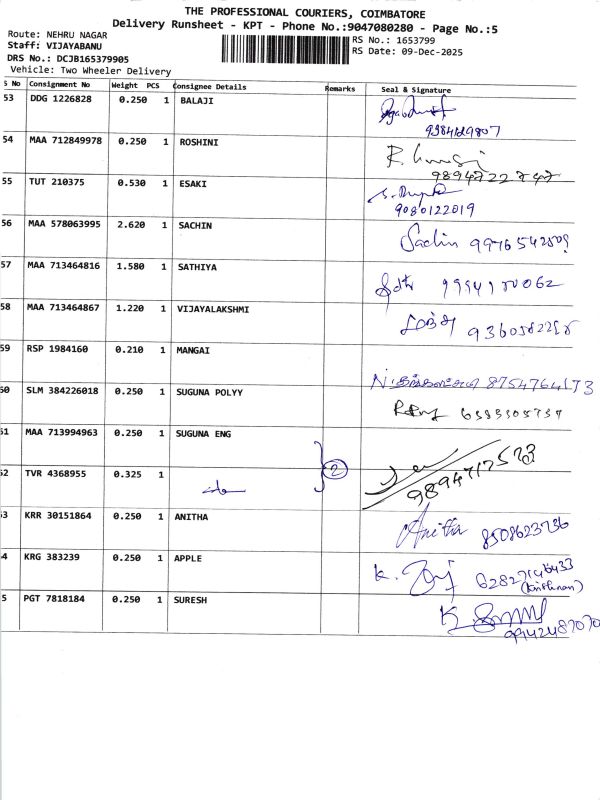 THE PROFESSIONAL COURIERS, COIMBATORE
Delivery Runsheet - KPT - Phone No.:9047080280 - Page No.:5
Route: NEHRU NAGAR
Staff: VIJAYABANU
DRS No.: DCJB165379905
Vehicle: Two Wheeler Delivery
RS No.: 1653799
RS Date: 09-Dec-2025
S No Consignment No Weight PCS Consignee Details Remarks Seal & Signature
53 DDG 1226828 0.250 1 BALAJI
54 MAA 712849978 0.250 1 ROSHINI
55 TUT 210375 0.530 1 ESAKI
9080122019
56 MAA 578063995 2.620 1 SACHIN Sachin
57 MAA 713464816 1.580 1 SATHIYA
58 MAA 713464867 1.220 1 VIJAYALAKSHMI
59 RSP 1984160 0.210 1 MANGAI
60 SLM 384226018 0.250 1 SUGUNA POLYY
61 MAA 713994963 0.250 1 SUGUNA ENG
62 TVR 4368955 0.325 1 2
63 KRR 30151864 0.250 1 ANITHA Anitha 8508623736
64 KRG 383239 0.250 1 APPLE K.
65 PGT 7818184 0.250 1 SURESH K